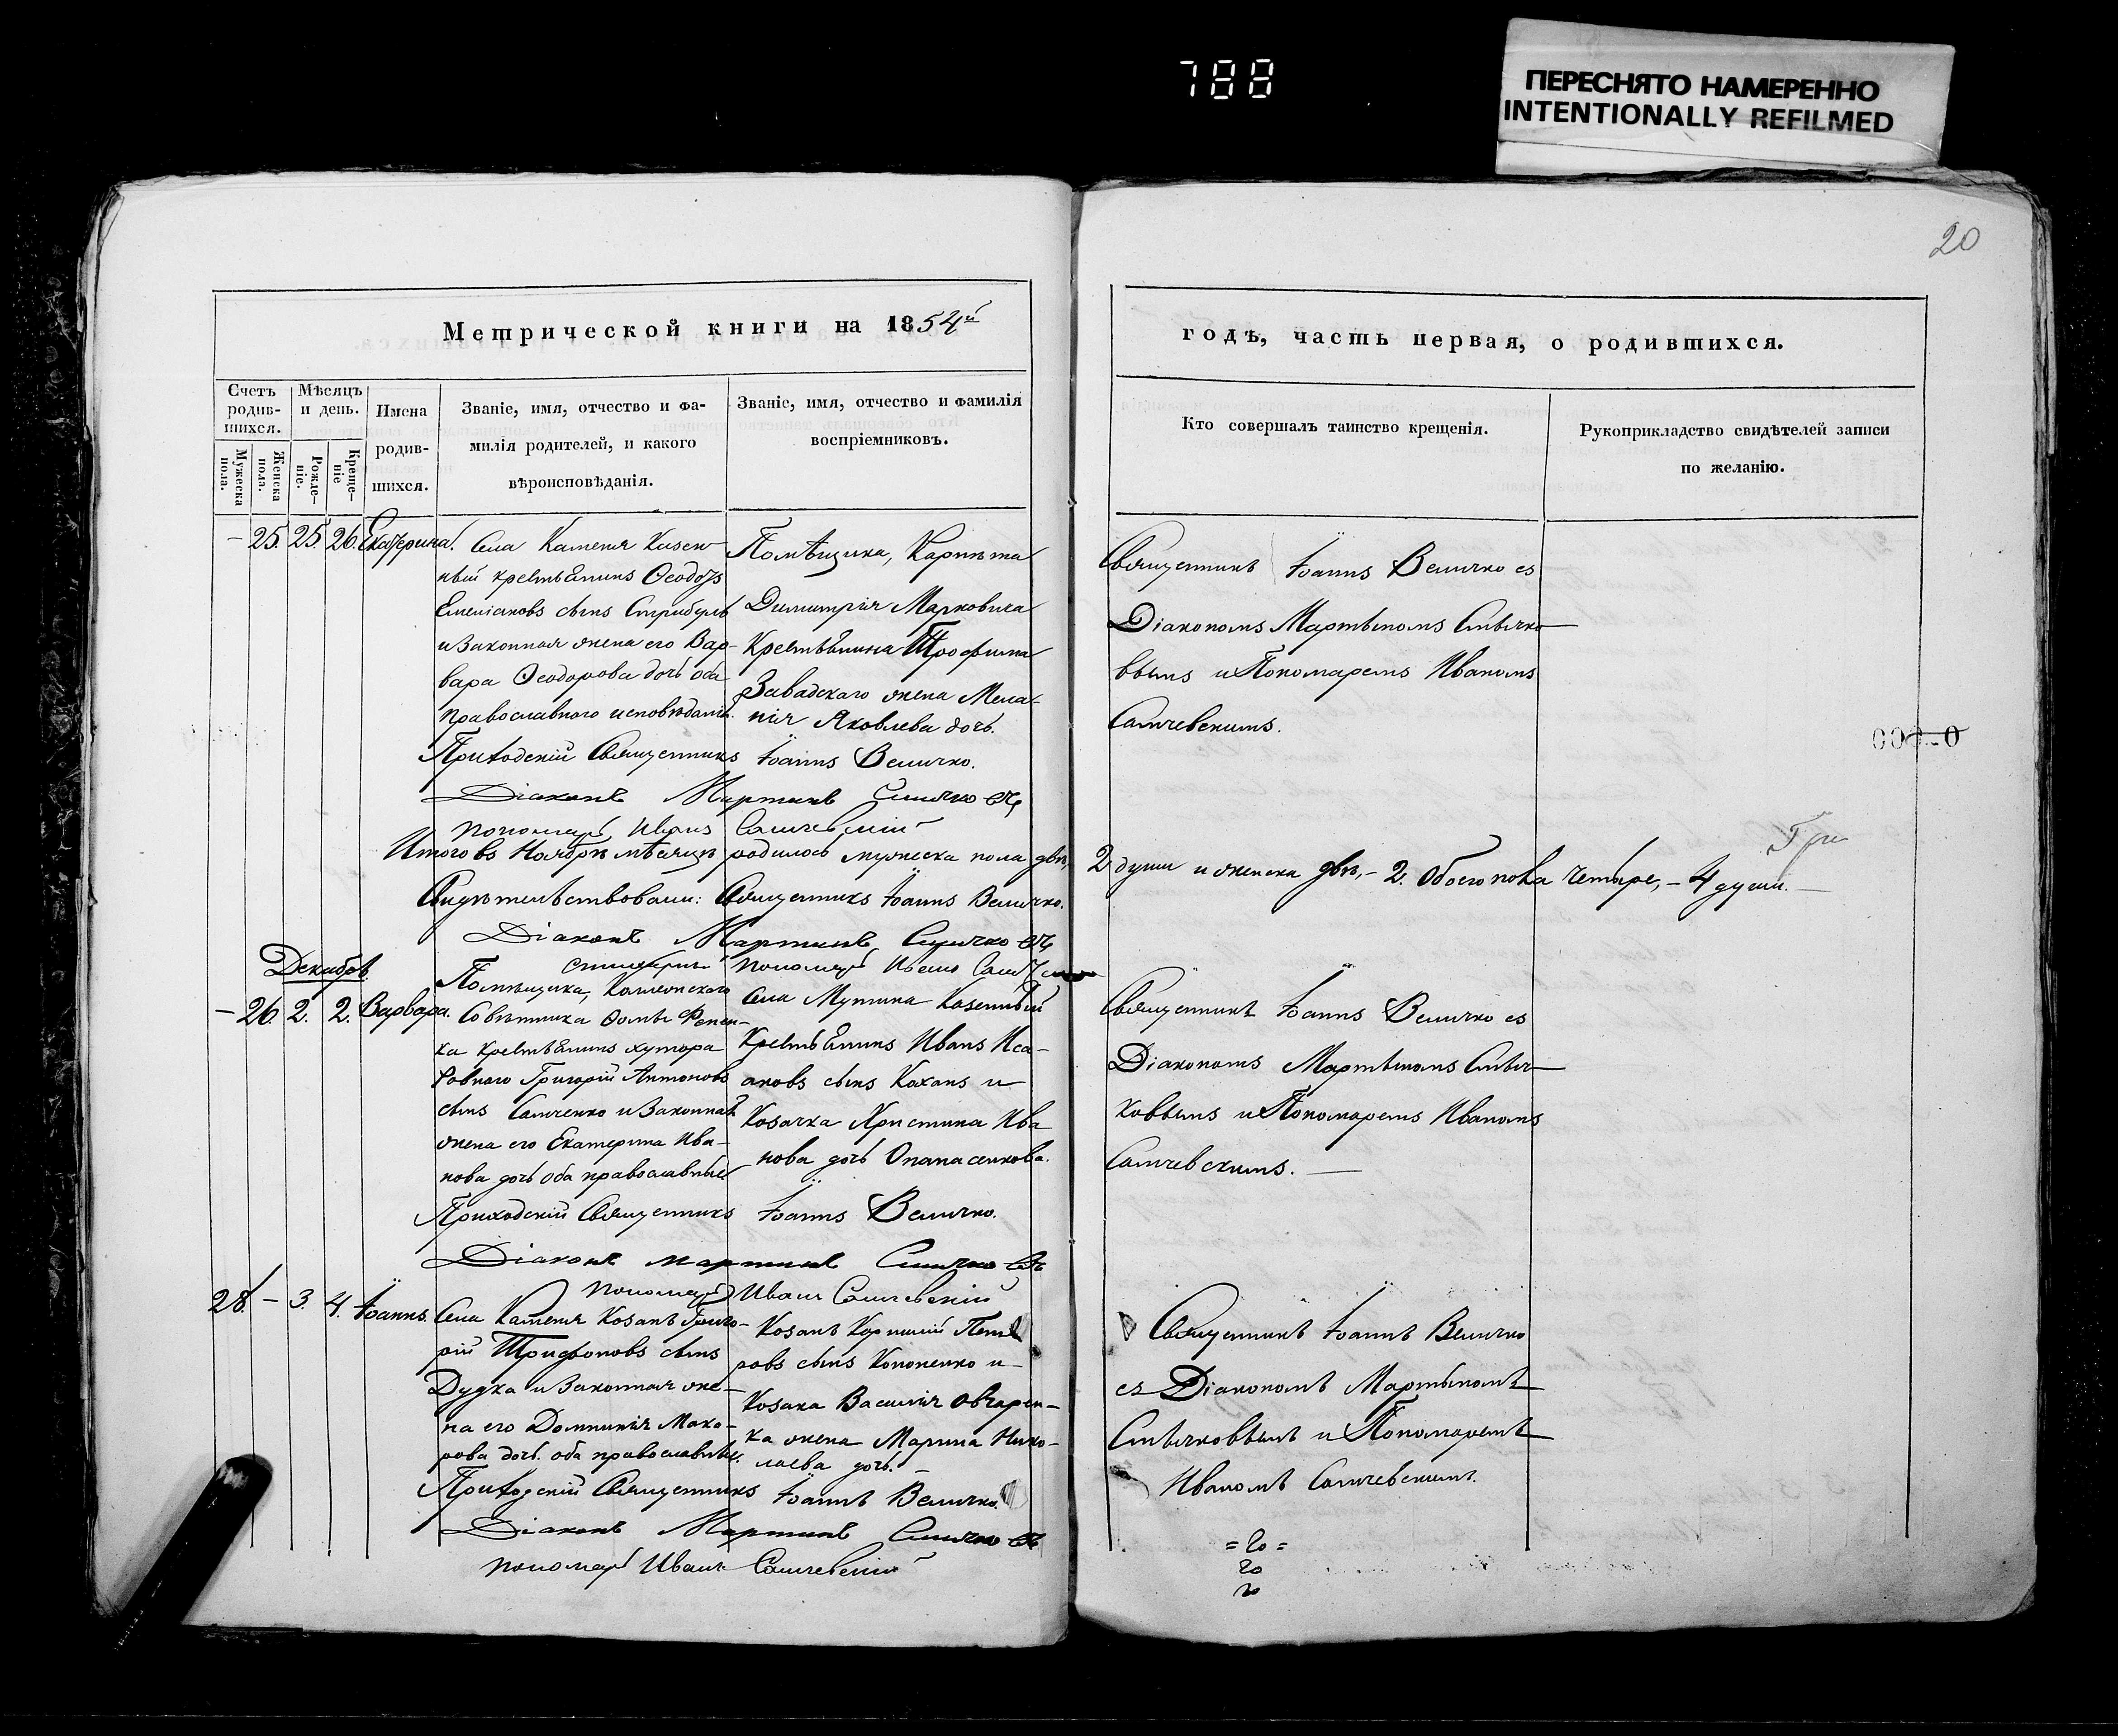 788
ПЕРЕСНЯТО НАМЕРЕННО
INTENTIONALLY REFILMED
20
Метрической книги на 1854й
годъ, часть первая, о родившихся.
Счетъ родившихся.
Мѣсяцъ и день.
Имена родившихся.
Званіе, имя, отчество и фамилія родителей, и какого вѣроисповѣданія.
Званіе, имя, отчество и фамилія воспріемниковъ.
Кто совершалъ таинство крещенія.
Рукоприкладство свидѣтелей записи по желанію.
Мужеска пола.
Женска пола.
Рожденіе.
Крещеніе
– 25. 25. 26. Екатерина.
Села Каменя Казен
ный крестьянинъ Ѳеодоръ
сынъ
и законная жена его Вар-
вара Ѳеодорова дочь оба
православнаго исповѣданія.
Помѣщика, Корнета
Димитрія Марковича
Крестьянина Трофима
Завадскаго жена Мела-
нія Яковлева дочь.
Священникъ Іоаннъ Величко съ
Діакономъ Мартыномъ
и Пономаремъ Иваномъ
Приходскій Священникъ Іоаннъ Величко.
Діаконъ Мартинъ
пономарь Иванъ
000-0
Итого въ Ноябрѣ мѣсяцѣ родилось мужеска пола двѣ,
2 души и женска двѣ,– 2. Обоего пола четыре,– 4 души.
Свидѣтельствовали: Священникъ Іоаннъ Величко.
Діаконъ Мартинъ
пономарь Иванъ
Декабрь
– 26. 2. 2. Варвара.
Помѣщика, Коллежскаго
Совѣтника Ѳомы
ка крестьянинъ хутора
Ровнаго Григорій Антоновъ
сынъ Самченко и законная
жена его Екатерина Ива-
нова дочь оба православные
Села Мутина Казенный
Крестьянинъ Иванъ Иса-
аковъ сынъ Коханъ и
Козачка Христина Ива
нова дочь Опанасенкова.
Священникъ Іоаннъ Величко съ
Діакономъ Мартыномъ
и Пономаремъ Иваномъ
Приходскій Священникъ Іоаннъ Величко.
Діаконъ Мартинъ
пономарь Иванъ
28. – 3. 4. Іоаннъ.
Села Каменя Козакъ Григо-
рій Трифоновъ сынъ
Дудка и законная же-
на его Домникія Мака-
рова дочь. оба православные.
Козакъ Корнилій Пет
ровъ сынъ Кононенко и
Козака Василія Овчарен-
ка жена Марина Нико-
лаева дочь.
Священникъ Іоаннъ Величко
съ Діакономъ Мартыномъ
и Пономаремъ
Иваномъ
Приходскій Священникъ Іоаннъ Величко.
Діаконъ Мартинъ
пономарь Иванъ
= 20 =
20
20